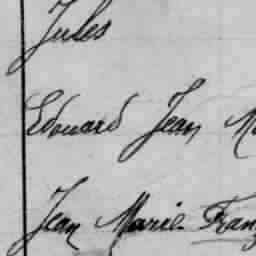 Jules
Edouard Jean
Jean Marie